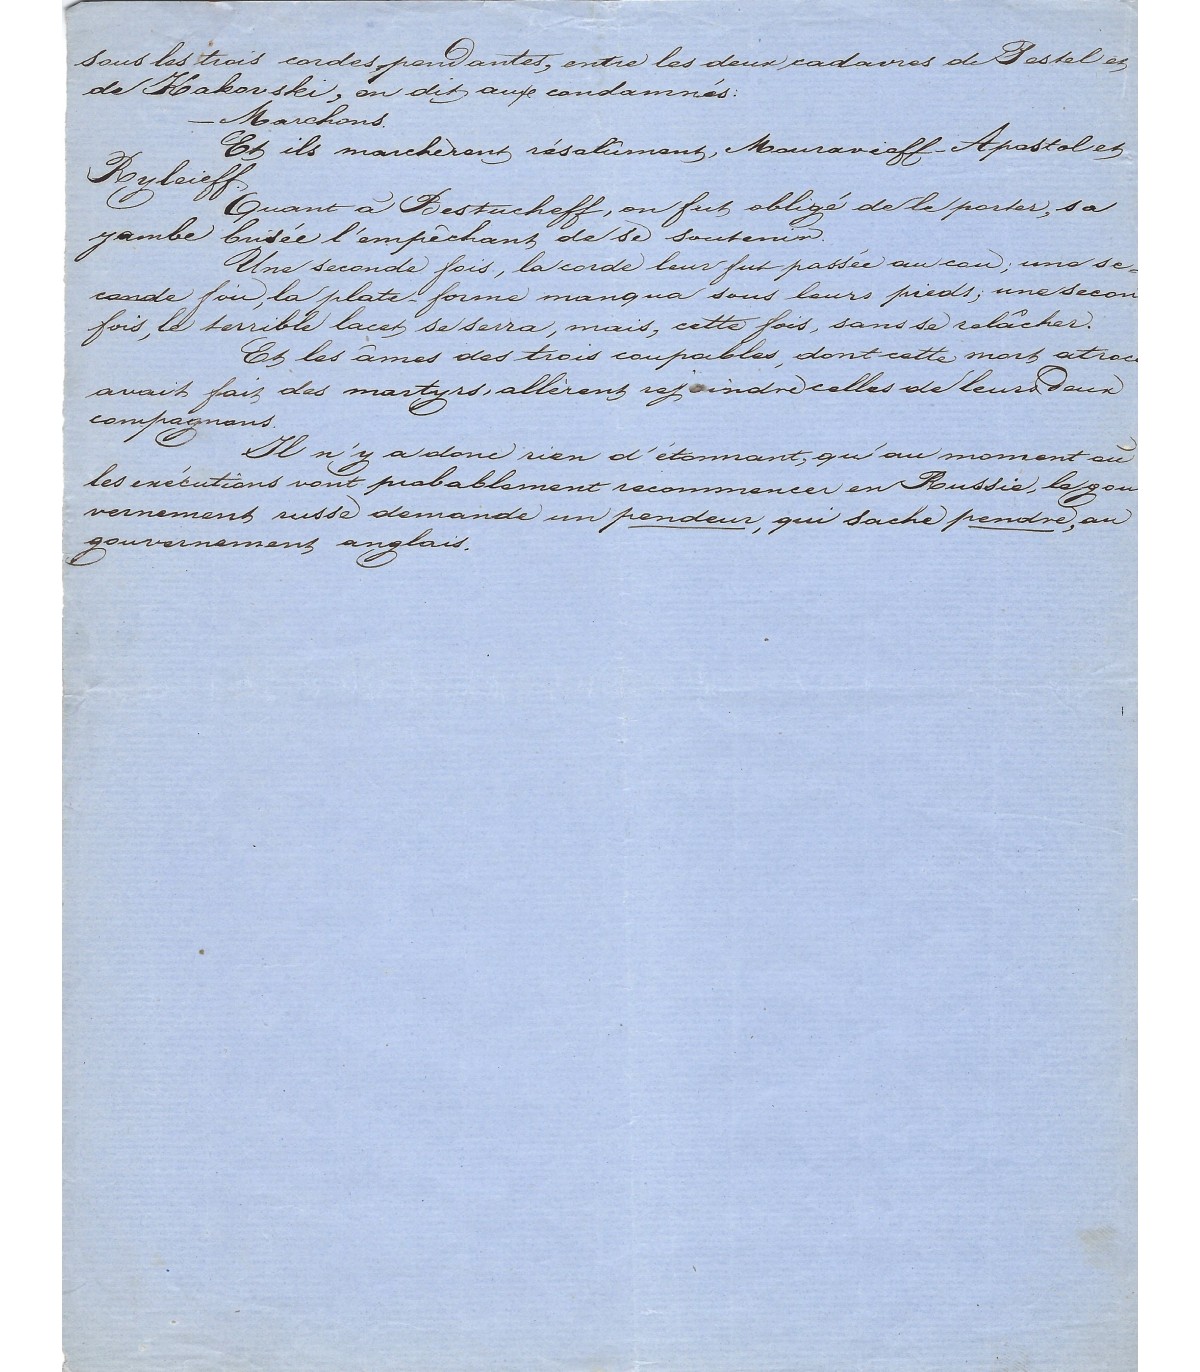 sous les trois cordes pendantes, entre les deux cadavres de Pestel et
de Kakovski, on dit aux condamnés:
— Marchons.
Et ils marchèrent résolûment, Mouravieff-Apostol et
Ryleieff.
Quant à Bestucheff, on fut obligé de le porter, sa
jambe brisée l'empêchant de se soutenir.
Une seconde fois, la corde leur fut passée au cou; une se-
conde fois, la plate-forme manqua sous leurs pieds; une secon
fois, le terrible lacet se serra, mais, cette fois, sans se relâcher.
Et les âmes des trois coupables, dont cette mort atroce
avait fait des martyrs, allèrent rejoindre celles de leurs deux
compagnons.
Il n'y a donc rien d'étonnant, qu'au moment où
les exécutions vont probablement recommencer en Russie, le gou
vernement russe demande un pendeur, qui sache pendre, au
gouvernement anglais.